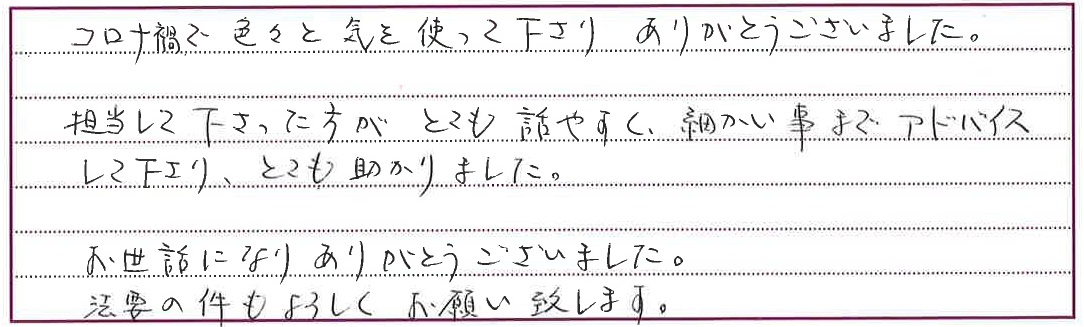 コロナ禍で色々と気を使って下さり ありがとうございました。
担当して下さった方が とても 話やすく、細かい事まで アドバイス
して下さり、とても助かりました。
お世話になり ありがとうございました。
法要の件もよろしく お願い致します。